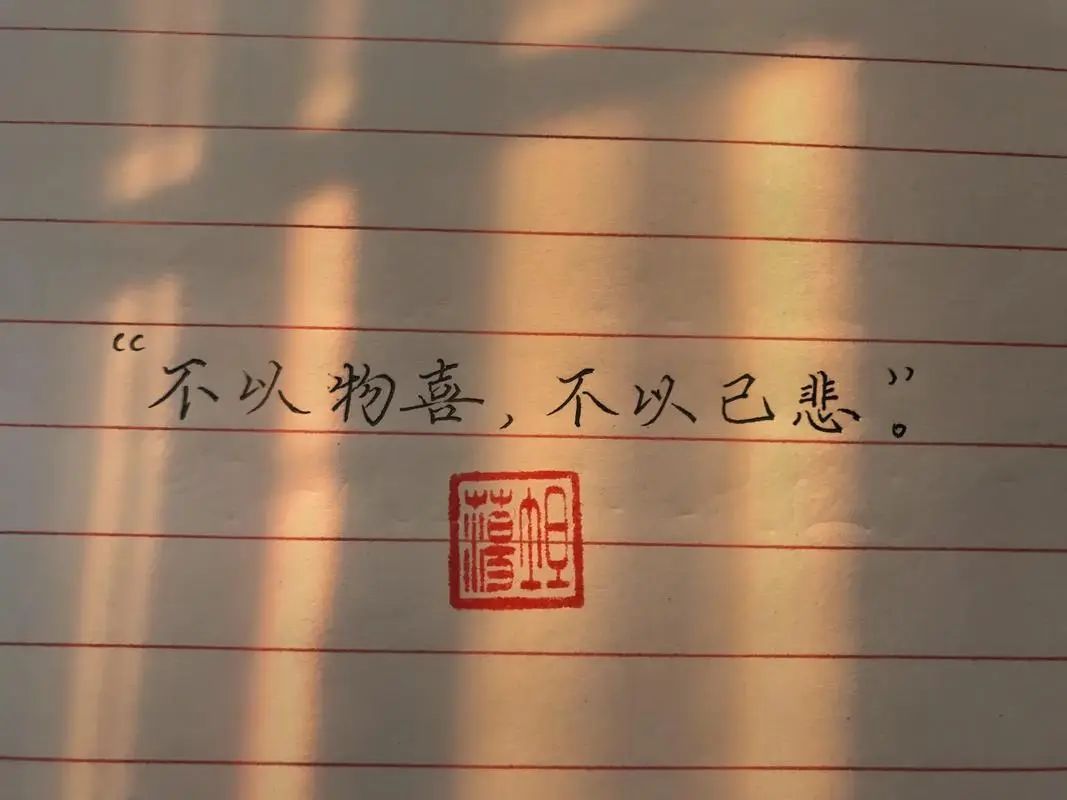 “不以物喜，不以己悲”。